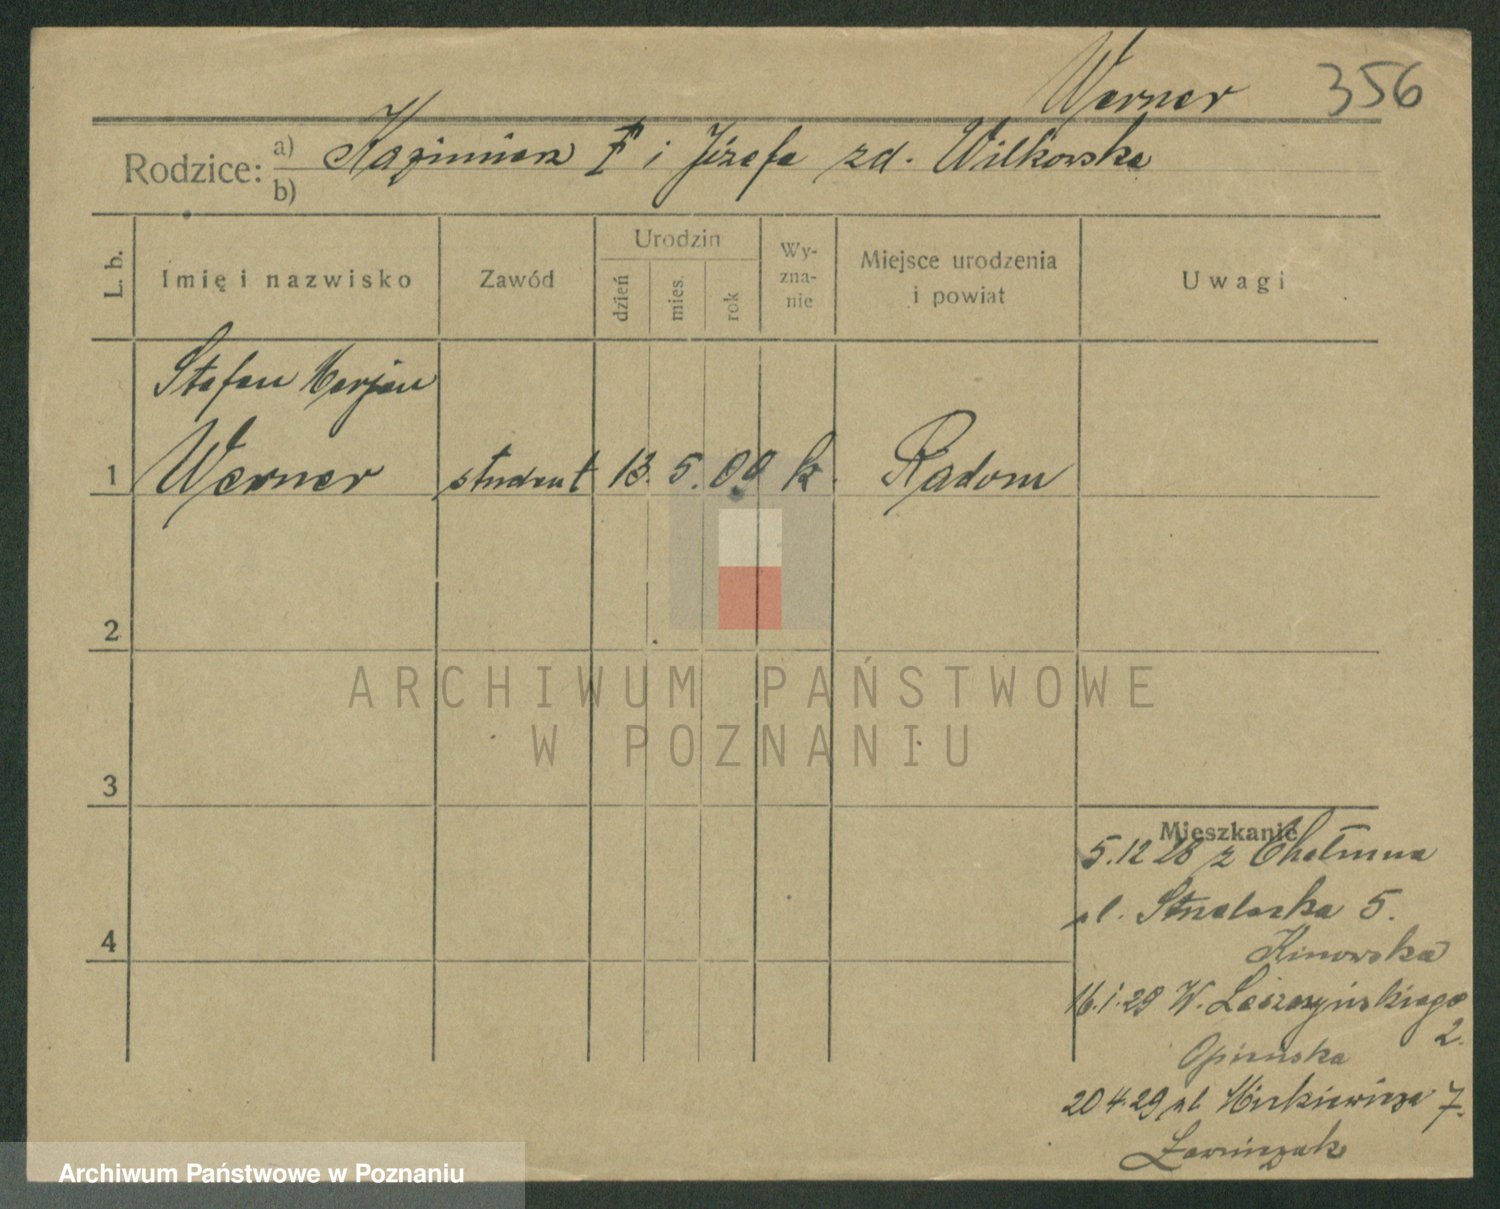 Werner 356
Rodzice: a) Kazimierz † i Józefa zd. Wilkowska
b)
L. b. Imię i nazwisko Zawód Urodzin dzień mies. rok Wy-zna-nie Miejsce urodzenia i powiat Uwagi
Stefan Marjan
1 Werner student 13. 5. 09 k. Radom
2
ARCHIWUM PAŃSTWOWE
W POZNANIU
3
Mieszkanie
5.12 28 z Chełmna
ul. Strzelecka 5.
4
Kinowska
16.1.29 W. Leszczyńskiego
2.
Opieńska
20 4.29 ul. Mickiewicza 7.
Archiwum Państwowe w Poznaniu